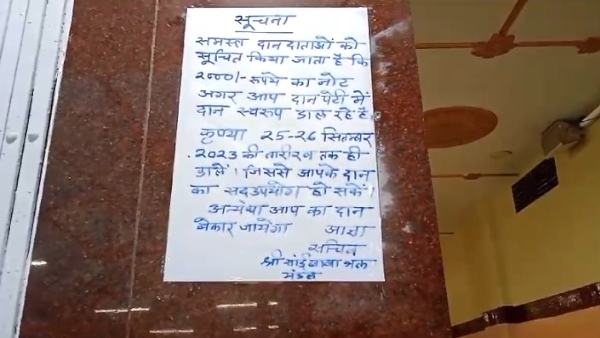 सूचना
समस्त दान दाताओं को
सूचित किया जाता है कि
2000/- रूपये का नोट
अगर आप दान पेटी में
दान स्वरुप डाल रहे है
कृप्या 25-26 सितम्बर
2023 की तारीख तक ही
डाले। जिससे आपके दान
का सदउपयोग हो सकें।
अन्यथा आप का दान
बेकार जायेगा आज्ञा
सचिव
श्री सांई बाबा भक्त
मंडल